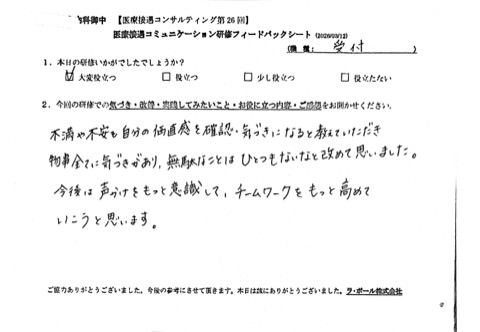 科御中 【医療接遇コンサルティング第26回】
医療接遇コミュニケーション研修フィードバックシート (2026/03/12)
(職種: 受付 )
1. 本日の研修いかがでしたでしょうか?
☑ 大変役立つ □ 役立つ □ 少し役立つ □ 役立たない
2. 今回の研修での気づき・改善・実践してみたいこと・お役に立つ内容・ご感想をお聞かせください。
不満や不安も自分の価値感を確認・気づきになると教えていただき
物事全てに気づきがあり、無駄なことは ひとつもないなと改めて思いました。
今後は 声かけをもっと意識して、チームワークを もっと高めて
いこうと思います。
ご協力ありがとうございました。今後の参考にさせて頂きます。本日は誠にありがとうございました。ラ・ポール株式会社